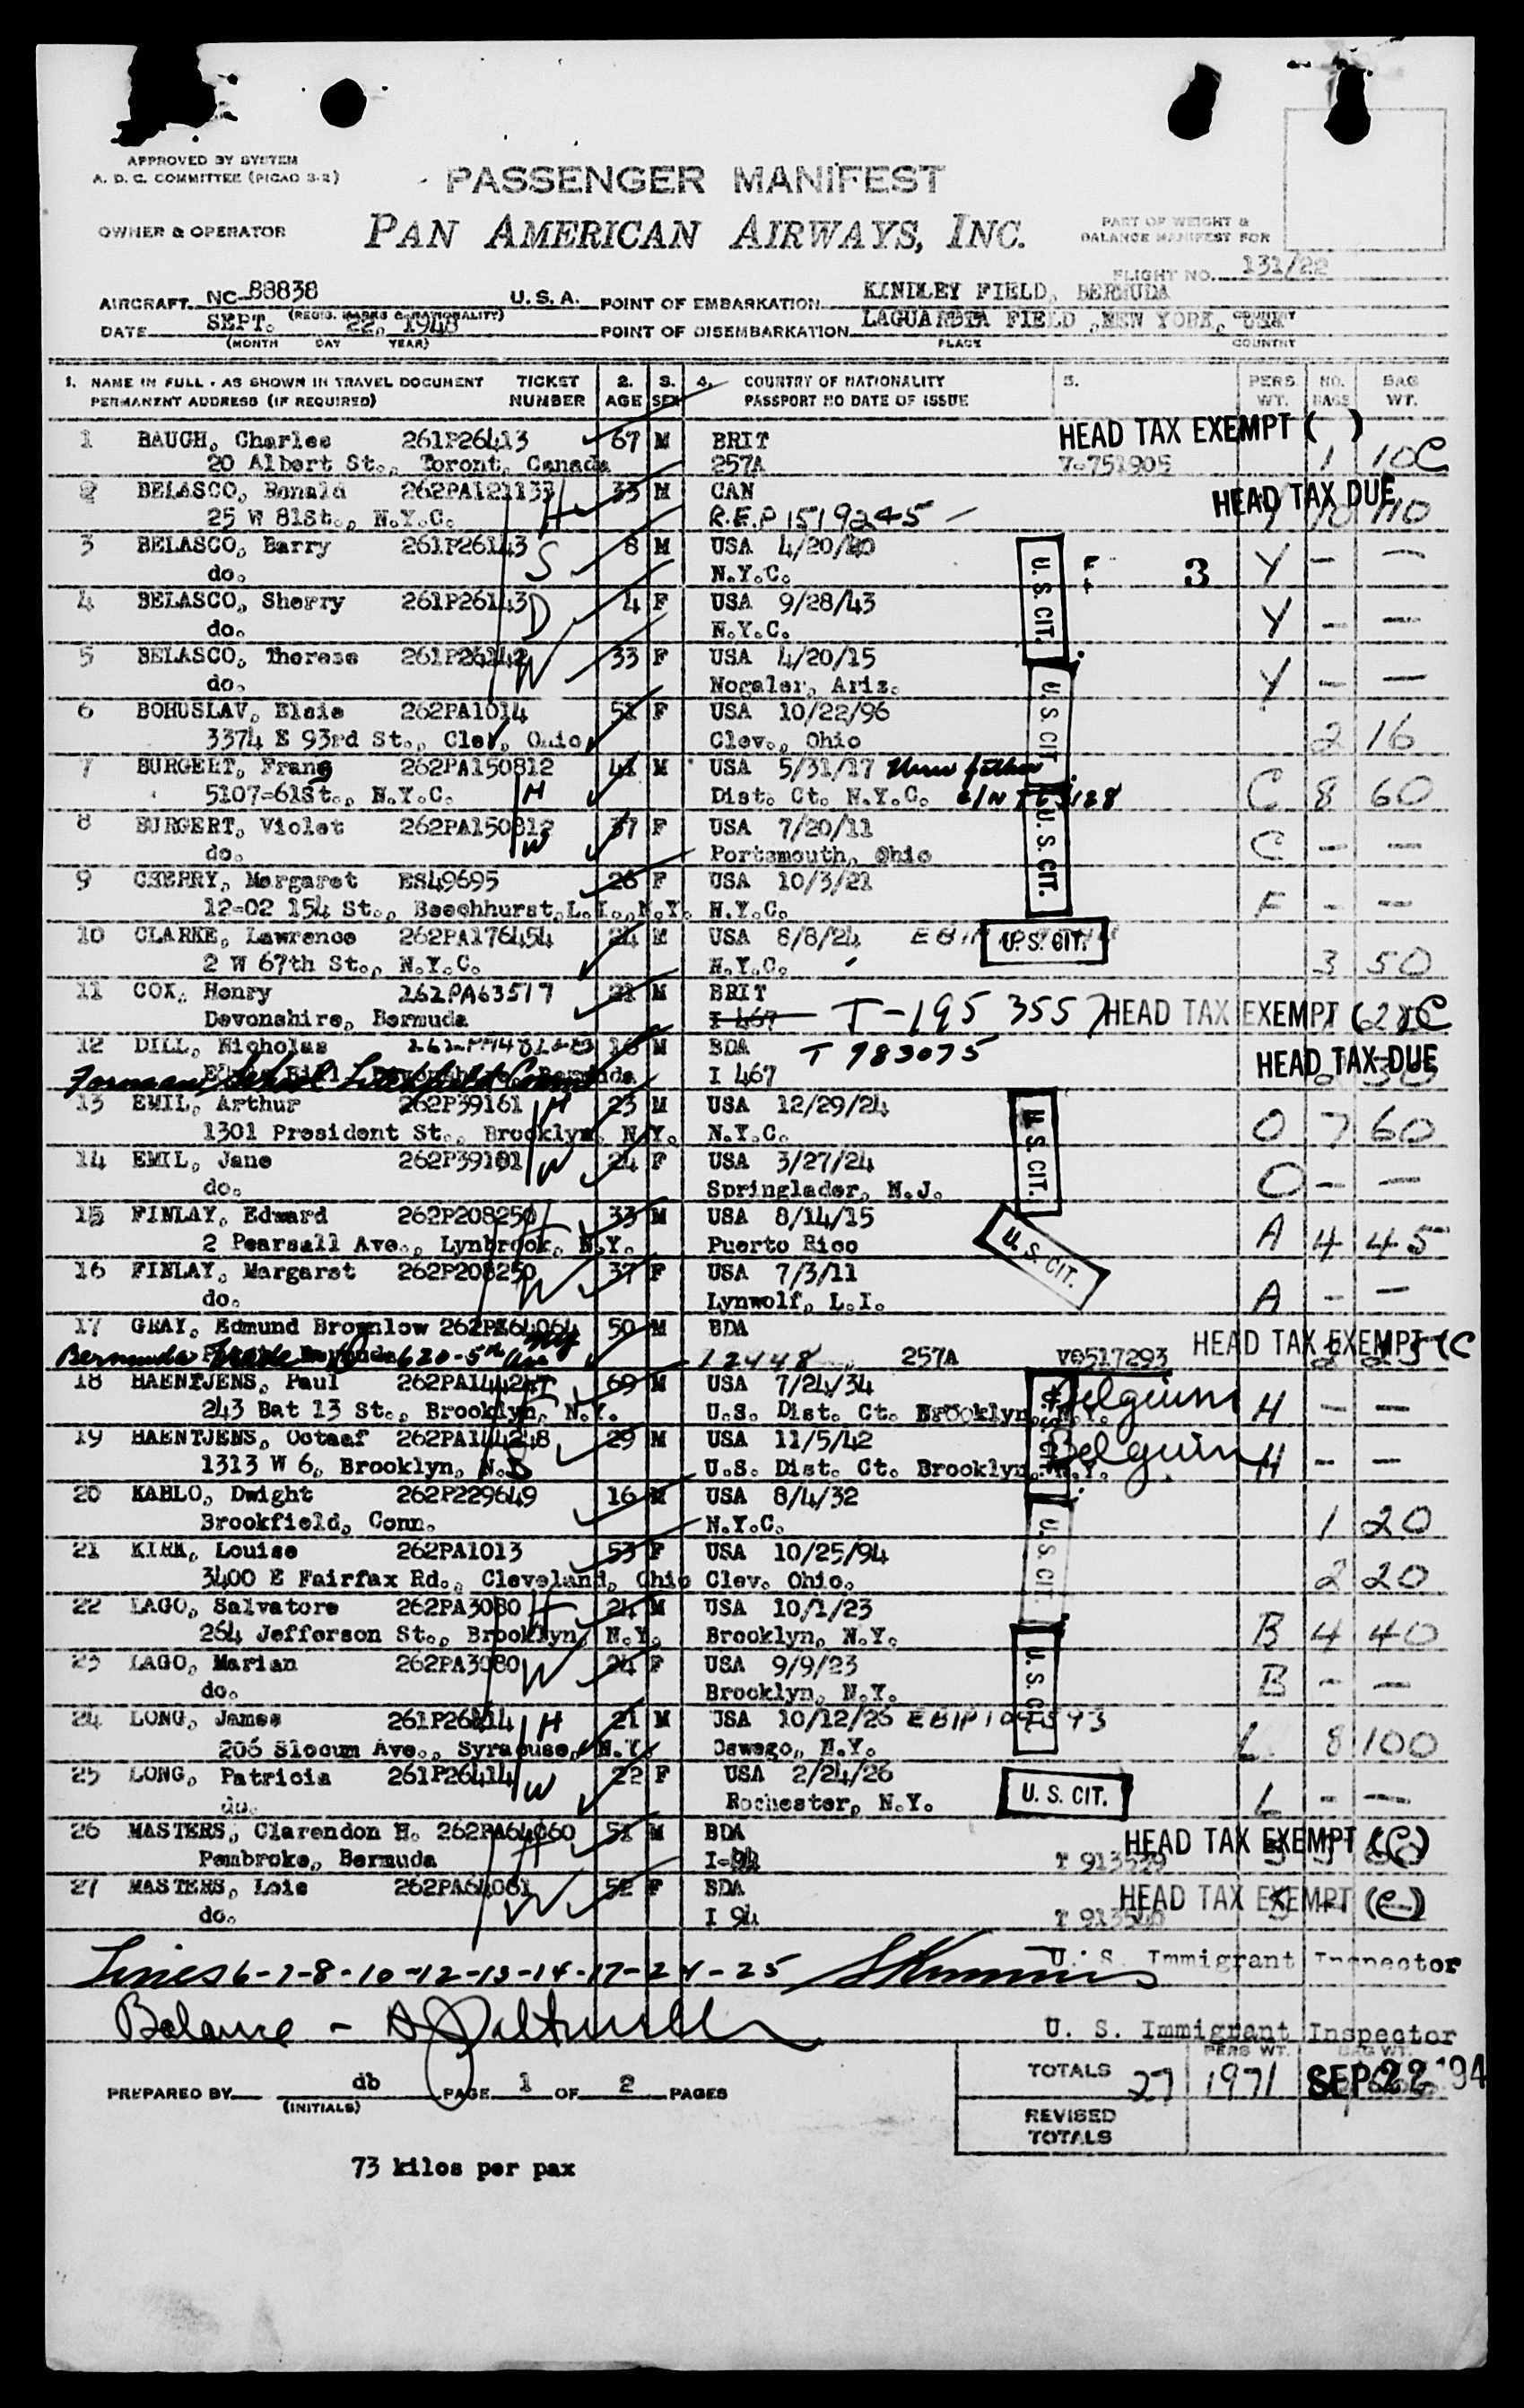 APPROVED BY SYSTEM
A. D. C. COMMITTEE (PICAO S-2)
PASSENGER MANIFEST
OWNER & OPERATOR
PAN AMERICAN AIRWAYS, INC.
PART OF WEIGHT &
BALANCE MANIFEST FOR
FLIGHT NO. 131/22
AIRCRAFT NC-88838 U.S.A. POINT OF EMBARKATION KINDLEY FIELD, BERMUDA
(REGIS. MARKS & NATIONALITY)
DATE SEPT. 22, 1948 POINT OF DISEMBARKATION LAGUARDIA FIELD, NEW YORK, USA
(MONTH DAY YEAR) PLACE COUNTRY
1. NAME IN FULL - AS SHOWN IN TRAVEL DOCUMENT TICKET 2. S. 4. COUNTRY OF NATIONALITY 5. PERS. NO. BAG
PERMANENT ADDRESS (IF REQUIRED) NUMBER AGE SEX PASSPORT NO DATE OF ISSUE WT. BAGS WT.
1 BAUGH, Charles 261P26413 67 M BRIT HEAD TAX EXEMPT ( )
20 Albert St., Toront, Canada 257A V-751905 1 10 C
2 BELASCO, Ronald 262PA121133 H 33 M CAN HEAD TAX DUE
25 W 81St., N.Y.C. R.E.P 1519245 Y 10 110
3 BELASCO, Barry 261P26143 S 8 M USA 4/20/40 U. S. CIT. 3 Y - -
do. N.Y.C.
4 BELASCO, Sherry 261P26143 D 4 F USA 9/28/43 Y - -
do. N.Y.C.
5 BELASCO, Therese 261P26142 W 33 F USA 4/20/15 U. S. CIT. Y - -
do. Nogaler, Ariz.
6 BOHUSLAV, Elsie 262PA1014 51 F USA 10/22/96
3374 E 93rd St., Clev, Ohio Clev., Ohio 2 16
7 BURGERT, Frang 262PA150812 41 M USA 5/31/17
5107-61St., N.Y.C. H Dist. Ct. N.Y.C. C 8 60
8 BURGERT, Violet 262PA150812 W 37 F USA 7/20/11 U. S. CIT.
do. Portsmouth, Ohio C - -
9 CHERRY, Margaret ES49695 26 F USA 10/3/21
12-02 154 St., Beechhurst,L.I.,N.Y. N.Y.C. F - -
10 CLARKE, Lawrence 262PA176454 24 M USA 8/8/24 U. S. CIT.
2 W 67th St., N.Y.C. N.Y.C. 3 50
11 COX, Henry 262PA63517 21 M BRIT
Devonshire, Bermuda I 467 T-195 3557 HEAD TAX EXEMPT ( C
12 DILL, Nicholas 16 M BDA T 983075 HEAD TAX DUE
Formans School Litchfield Conn I 467
13 EMIL, Arthur 262P39161 H 23 M USA 12/29/24 U. S. CIT.
1301 President St., Brooklyn, N.Y. N.Y.C. O 7 60
14 EMIL, Jane 262P39161 W 24 F USA 3/27/24
do. Springlader, N.J. O - -
15 FINLAY, Edward 262P208250 H 33 M USA 8/14/15
2 Pearsall Ave., Lynbrook, N.Y. Puerto Rico U. S. CIT. A 4 45
16 FINLAY, Margaret 262P208250 W 37 F USA 7/3/11
do. Lynwolf, L.I. A - -
17 GRAY, Edmund Brownlow 262PA64064 50 M BDA HEAD TAX EXEMPT (C
Bermuda Trade 620-5th Ave 12448 257A V0517293
18 HAENTJENS, Paul 262PA144247 69 M USA 7/24/34 Belgium H - -
243 Bat 13 St., Brooklyn, N.Y. U.S. Dist. Ct. Brooklyn, N.Y.
19 HAENTJENS, Octaaf 262PA144248 29 M USA 11/5/42 Belguim H - -
1313 W 6, Brooklyn, N.Y. S U.S. Dist. Ct. Brooklyn, N.Y.
20 KABLO, Dwight 262P229649 16 M USA 8/4/32 U. S. CIT.
Brookfield, Conn. N.Y.C. 1 20
21 KIRK, Louise 262PA1013 53 F USA 10/25/94
3400 E Fairfax Rd., Cleveland, Ohio Clev. Ohio. 2 20
22 LAGO, Salvatore 262PA3080 H 24 M USA 10/1/23
264 Jefferson St., Brooklyn, N.Y. Brooklyn, N.Y. B 4 40
23 LAGO, Marian 262PA3080 W 24 F USA 9/9/23 U. S. CIT.
do. Brooklyn, N.Y. B - -
24 LONG, James 261P26414 H 21 M USA 10/12/26
206 Slocum Ave., Syracuse, N.Y. Oswego, N.Y. L 8 100
25 LONG, Patricia 261P26414 W 22 F USA 2/24/26 U. S. CIT.
do. Rochester, N.Y. L - -
26 MASTERS, Clarendon H. 262PA64060 H 51 M BDA HEAD TAX EXEMPT (C)
Pembroke, Bermuda I-94 T 913529
27 MASTERS, Lois 262PA64061 W 52 F BDA HEAD TAX EXEMPT (C)
do. I 94 T 913540
Lines 6-7-8-10-12-13-14-17-24-25 U. S. Immigrant Inspector
Balance - U. S. Immigrant Inspector
PERS WT. BAG WT.
TOTALS 27 1971 SEP 22 194
PREPARED BY db PAGE 1 OF 2 PAGES
(INITIALS)
REVISED
TOTALS
73 kilos per pax